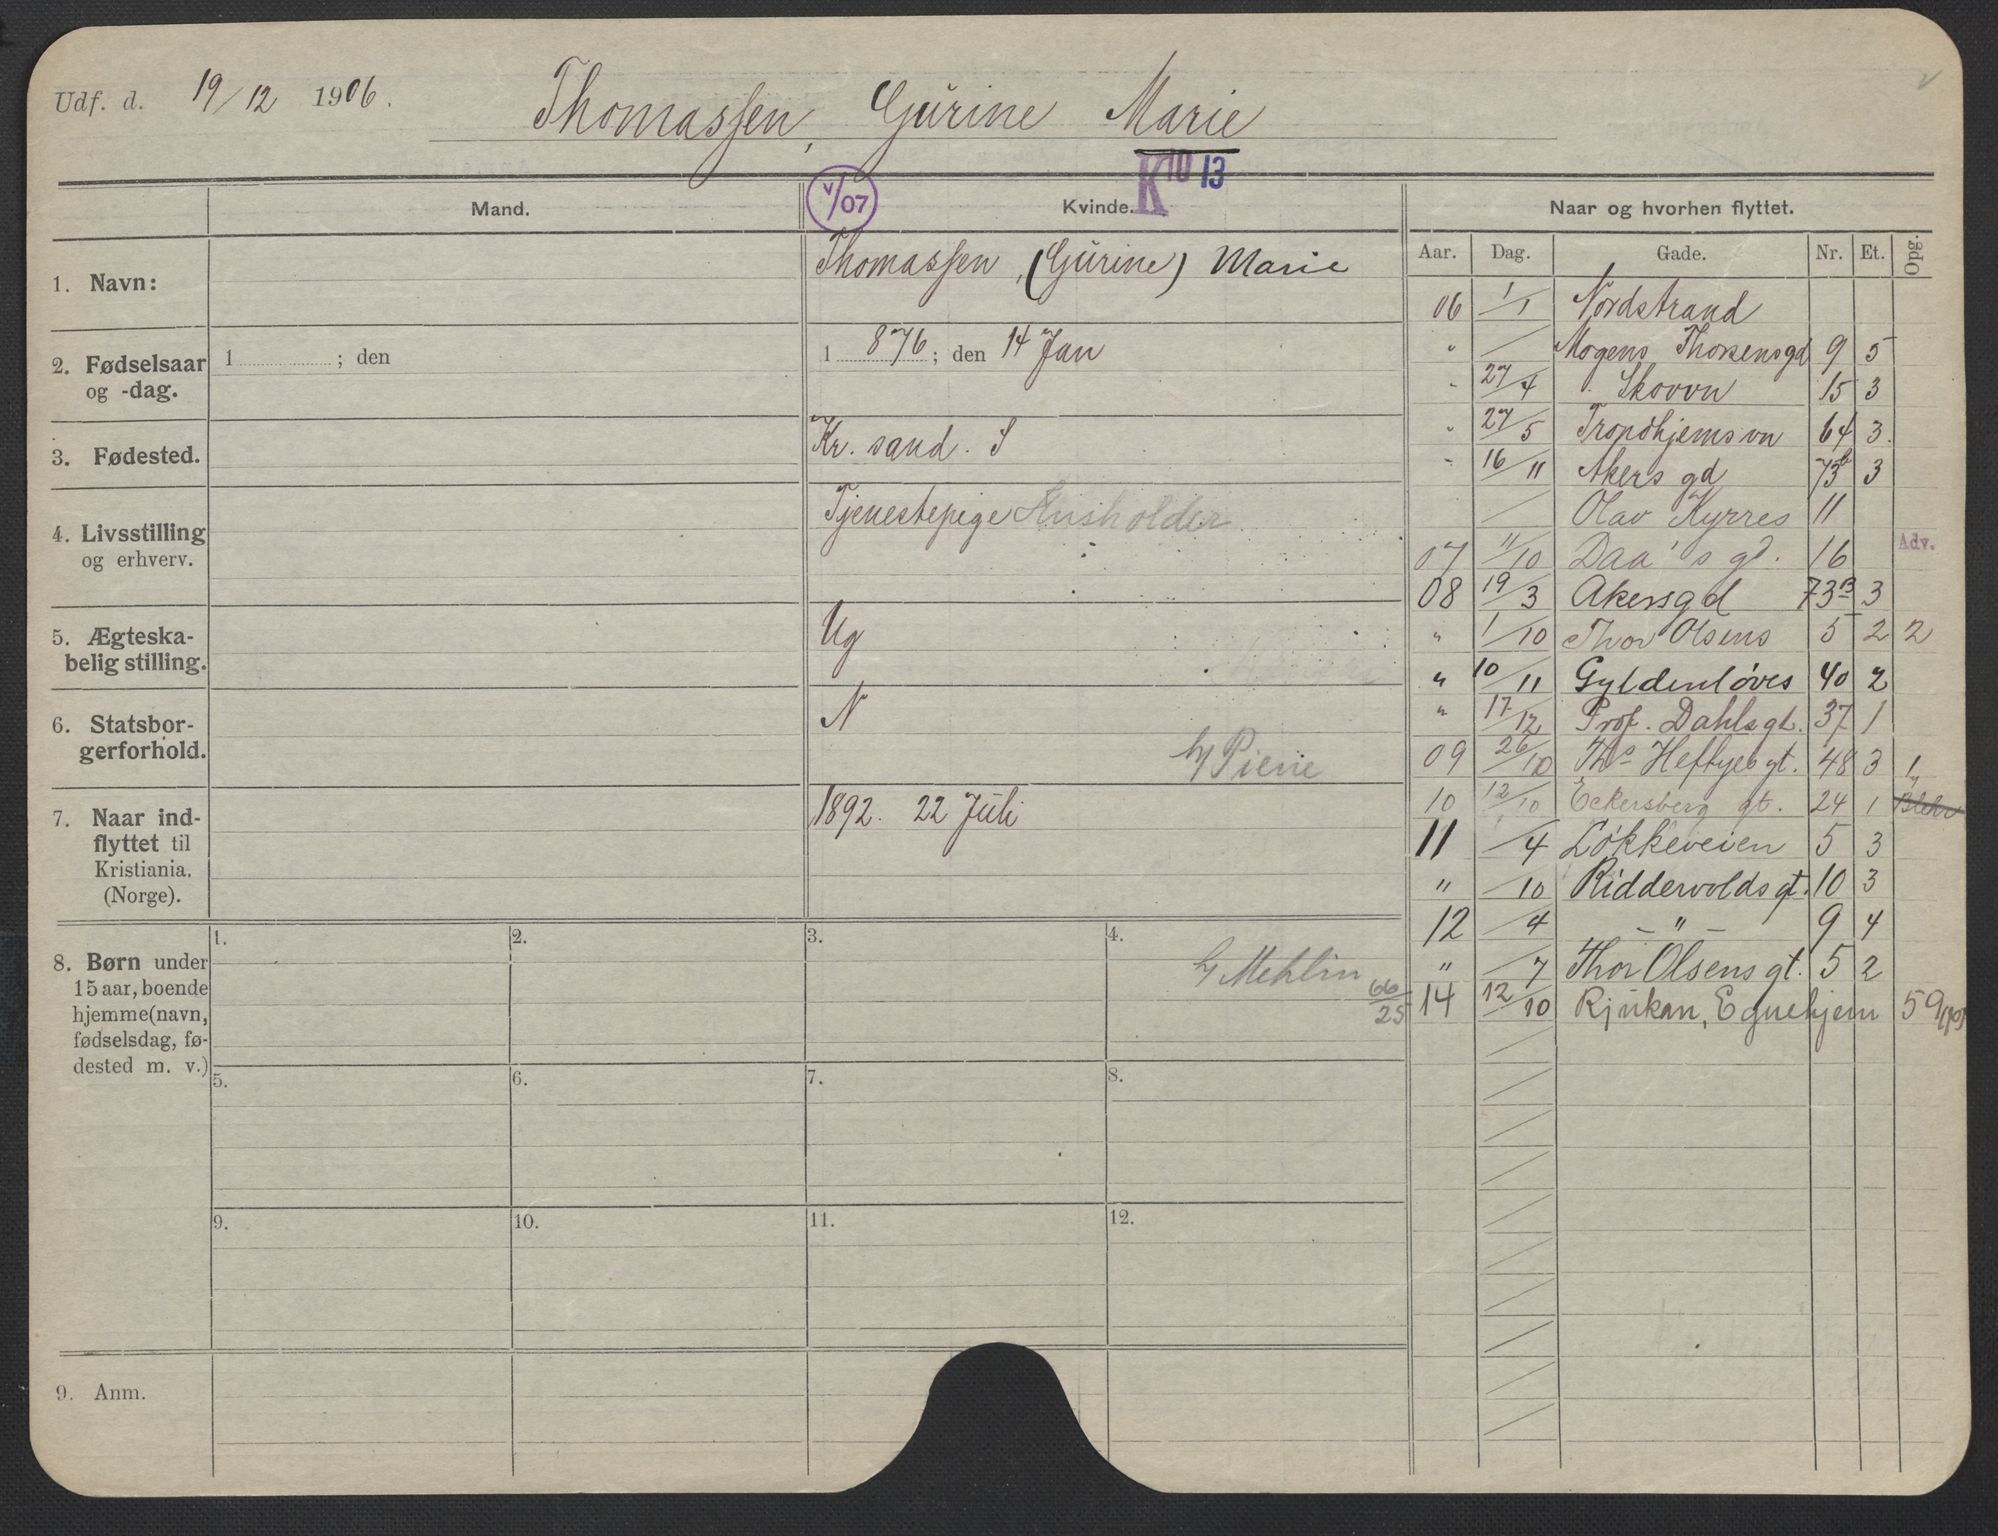 Udf. d. 19/12 1906. Thomassen, Gurine Marie
K 10 13
V/07
Mand. Kvinde. Naar og hvorhen flyttet.
Aar. Dag. Gade. Nr. Et. Opg.
1. Navn: Thomassen, (Gurine) Marie
2. Fødselsaar og -dag. 1 ; den 1 876 ; den 14 Jan
3. Fødested. Kr. sand. S
4. Livsstilling og erhverv. Tjenestepige Husholder
5. Ægteska-
belig stilling. Ug
6. Statsbor-
gerforhold. N
h/ Pierie
7. Naar ind-
flyttet til
Kristiania.
(Norge). 1892. 22 Juli
8. Børn under
15 aar, boende
hjemme (navn,
fødselsdag, fø-
dested m. v.)
1. 2. 3. 4.
h/ Mehlin 66/25
5. 6. 7. 8.
9. 10. 11. 12.
9. Anm.
06 1/1 Nordstrand
" / Mogens Thorsensgd 9 5
" 27/4 Skovvn 15 3
" 27/5 Trondhjemsvn 64 3.
" 16/11 Akersgd 73b 3
/ Olav Kyrres 11
07 11/10 Daa's gd. 16 Adv.
08 19/3 Akersgd 73B 3
" 1/10 Thor Olsens 5 2 2
" 10/11 Gyldenløves 40 2
" 17/12 Prof. Dahlsgt. 37 1
09 26/10 Ths Heftyesgt. 48 3 1
10 12/10 Eckersberg gt. 24 1
11 /4 Løkkeveien 5 3
" /10 Riddervoldsgt. 10 3
12 /4 — " — 9 4
" /7 Thor Olsensgt. 5 2
14 12/10 Rjukan, Egnehjem 59